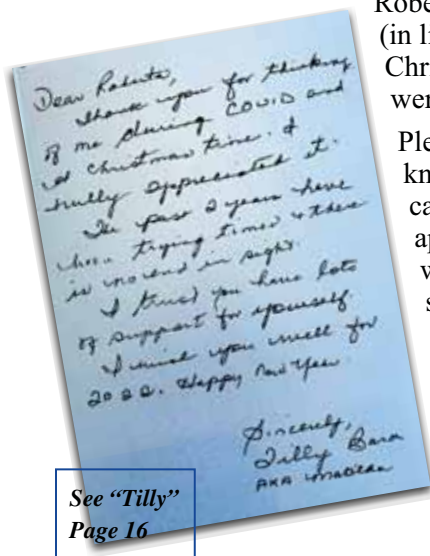 Dear Roberta,
Thank you for thinking
of me during COVID and
at Christmas time. I
trully appreciated it.
The past 2 years have
been trying times & there
is no end in sight.
I trust you have lots
of support for yourself.
I wish you well for
2022. Happy New Year
Sincerely,
Tilly Bara
AKA
See "Tilly"
Page 16
Robe
(in li
Chri
wer
Ple
kn
ca
ap
w
s